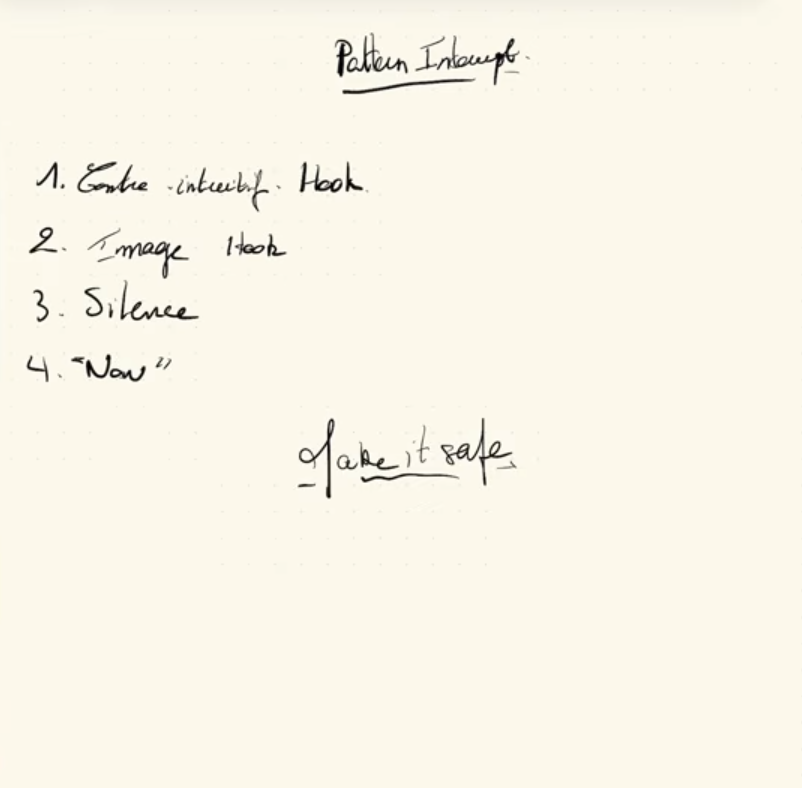 Pattern Interrupt.
1. Contre-intuitif. Hook.
2. Image Hook
3. Silence
4. "Now"
Make it safe.